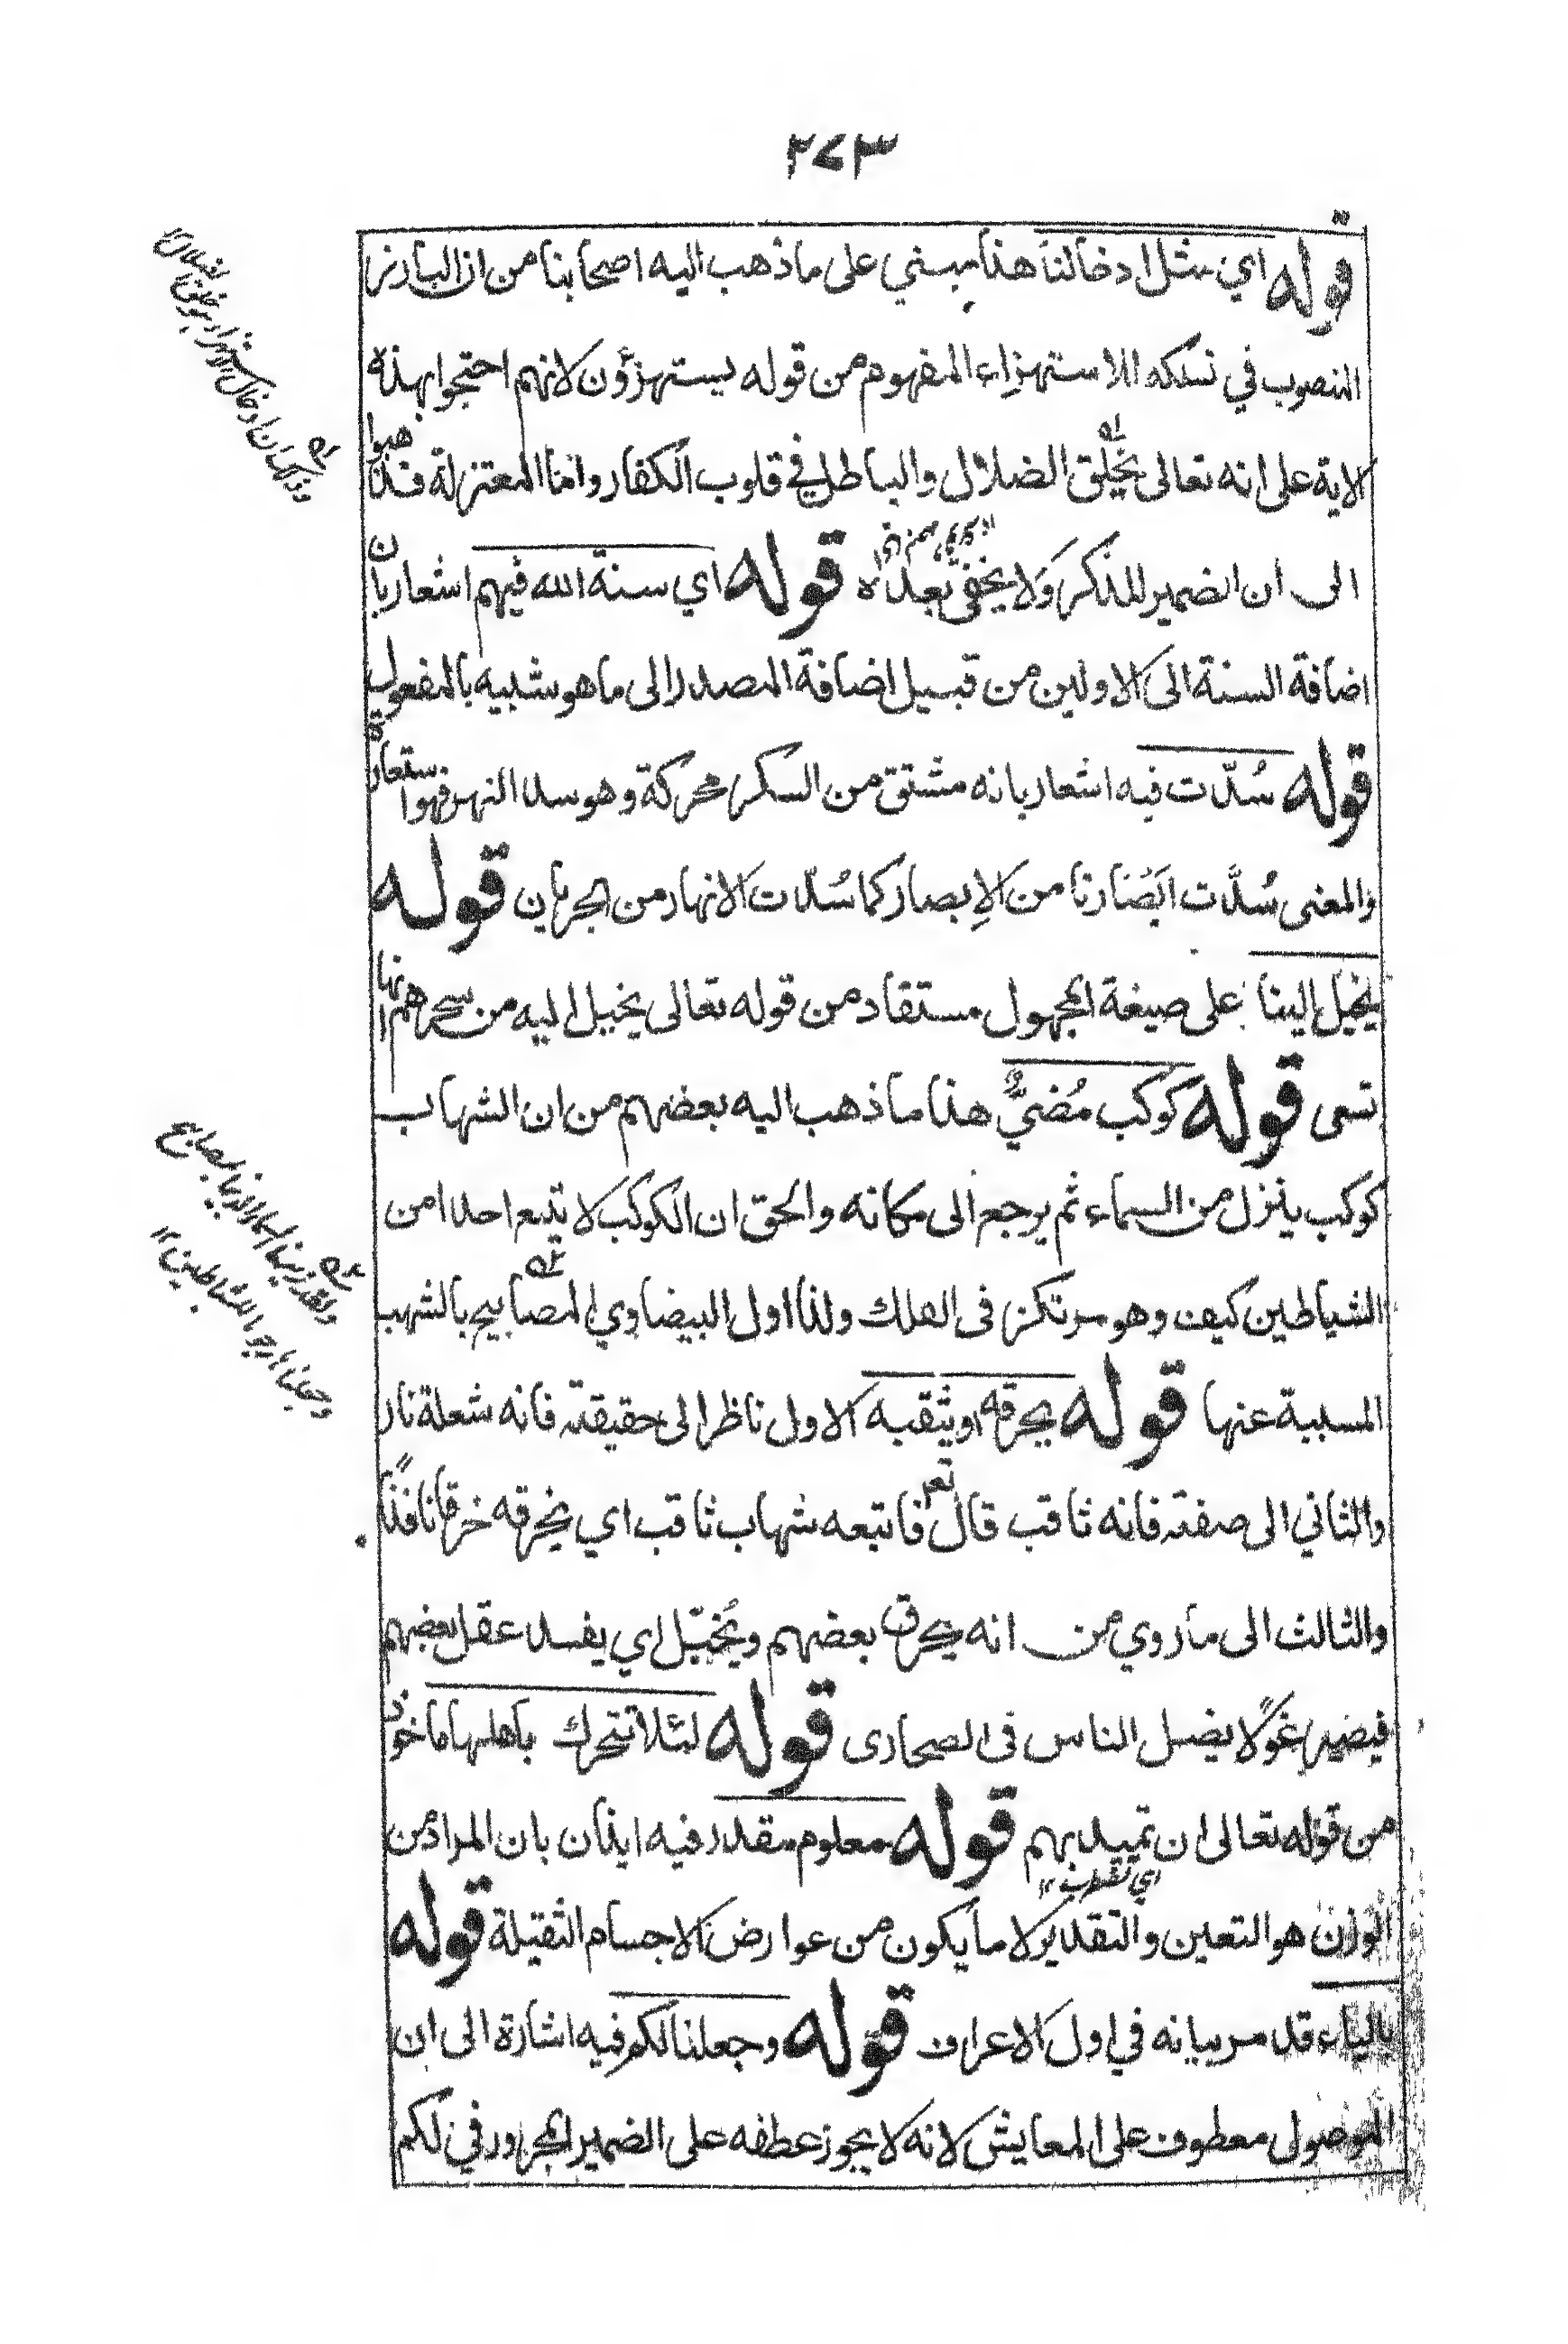 ٢٧٣
قوله اي مثل ادخالنا هذا مبني على ما ذهب اليه اصحابنا من ان البارز
المنصوب في نسلكه للاستهزاء المفهوم من قوله يستهزؤن لانهم احتجوا بهذه
الاية على انه تعالى يخلق الضلال والباطل في قلوب الكفار واما المعتزلة فذهبوا
الى ان الضمير للذكر ولا يخفى بعده قوله اي سنة الله فيهم اشعار بان
اضافة السنة الى الاولين من قبيل اضافة المصدر الى ما هو شبيه بالمفعول
قوله سُدّت فيه اشعار بانه مشتق من السكر محركة وهو سد النهر فهو استعارة
والمعنى سُدَّت ابَصُارنا من الاِبصار كما سُدّت الانهار من الجريان قوله
يخيل الينا على صيغة المجهول مستفاد من قوله تعالى يخيل اليه من سحرهم انها
تسى قوله كوكب مُضيٌّ هذا ما ذهب اليه بعضهم من ان الشهاب
كوكب ينزل من السماء ثم يرجع الى مكانه والحق ان الكوكب لا يتبع احدا من
الشياطين كيف وهو مرتكز فى الفلك ولذا اول البيضاوي المصابيح بالشهب
المسببة عنها قوله يحرقه او يثقبه الاول ناظر الى حقيقته فانه شعلة نار
والثاني الى صفته فانه ثاقب قال تعالى فاتبعه شهاب ثاقب اي يخرقه خرقا نافذًا
والثالث الى ما روي من انه يحرق بعضهم ويُخبّل اي يفسد عقل بعضهم
فيصير غولًا يضل الناس فى الصحارى قوله لئلا تتحرك باهلها ماخوذ
من قوله تعالى ان تميد بهم قوله معلوم مقدر فيه ايذان بان المراد من
اي تضطرب ١٢
الوزن هو التعين والتقدير لا ما يكون من عوارض الاجسام الثقيلة قوله
بالياء قد مر بيانه في اول الاعراف قوله وجعلنا لكم فيه اشارة الى ان
الموصول معطوف على المعايش لانه لا يجوز عطفه على الضمير المجرور في لكم
ولقد زينا السماء الدنيا بمصابيح
وجعلناها رجوما للشياطين ١٢